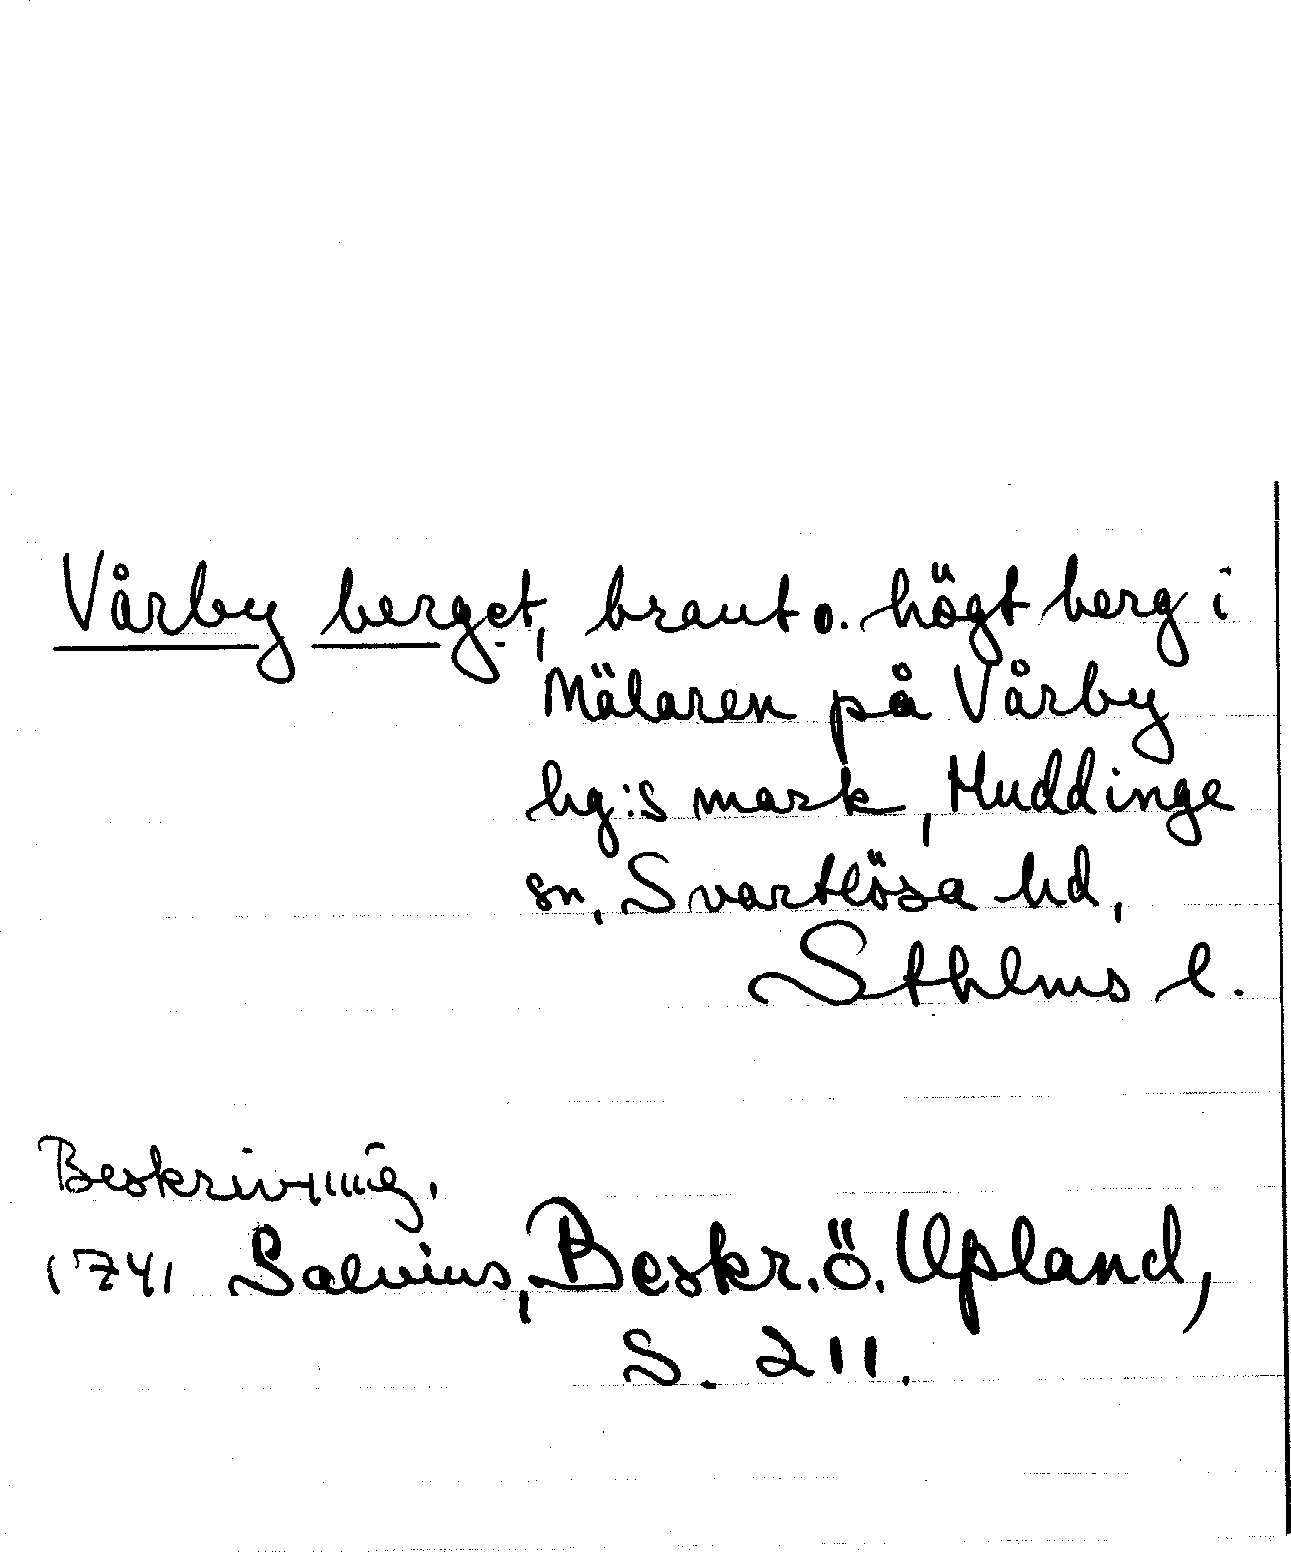 Vårby berget, brant o. högt berg i
Mälaren på Vårby
hg:s mark, Huddinge
sn, Svartlösa hd,
Sthlms l.
Beskrivning.
1741 Salvius, Beskr. ö. Upland,
S. 211.